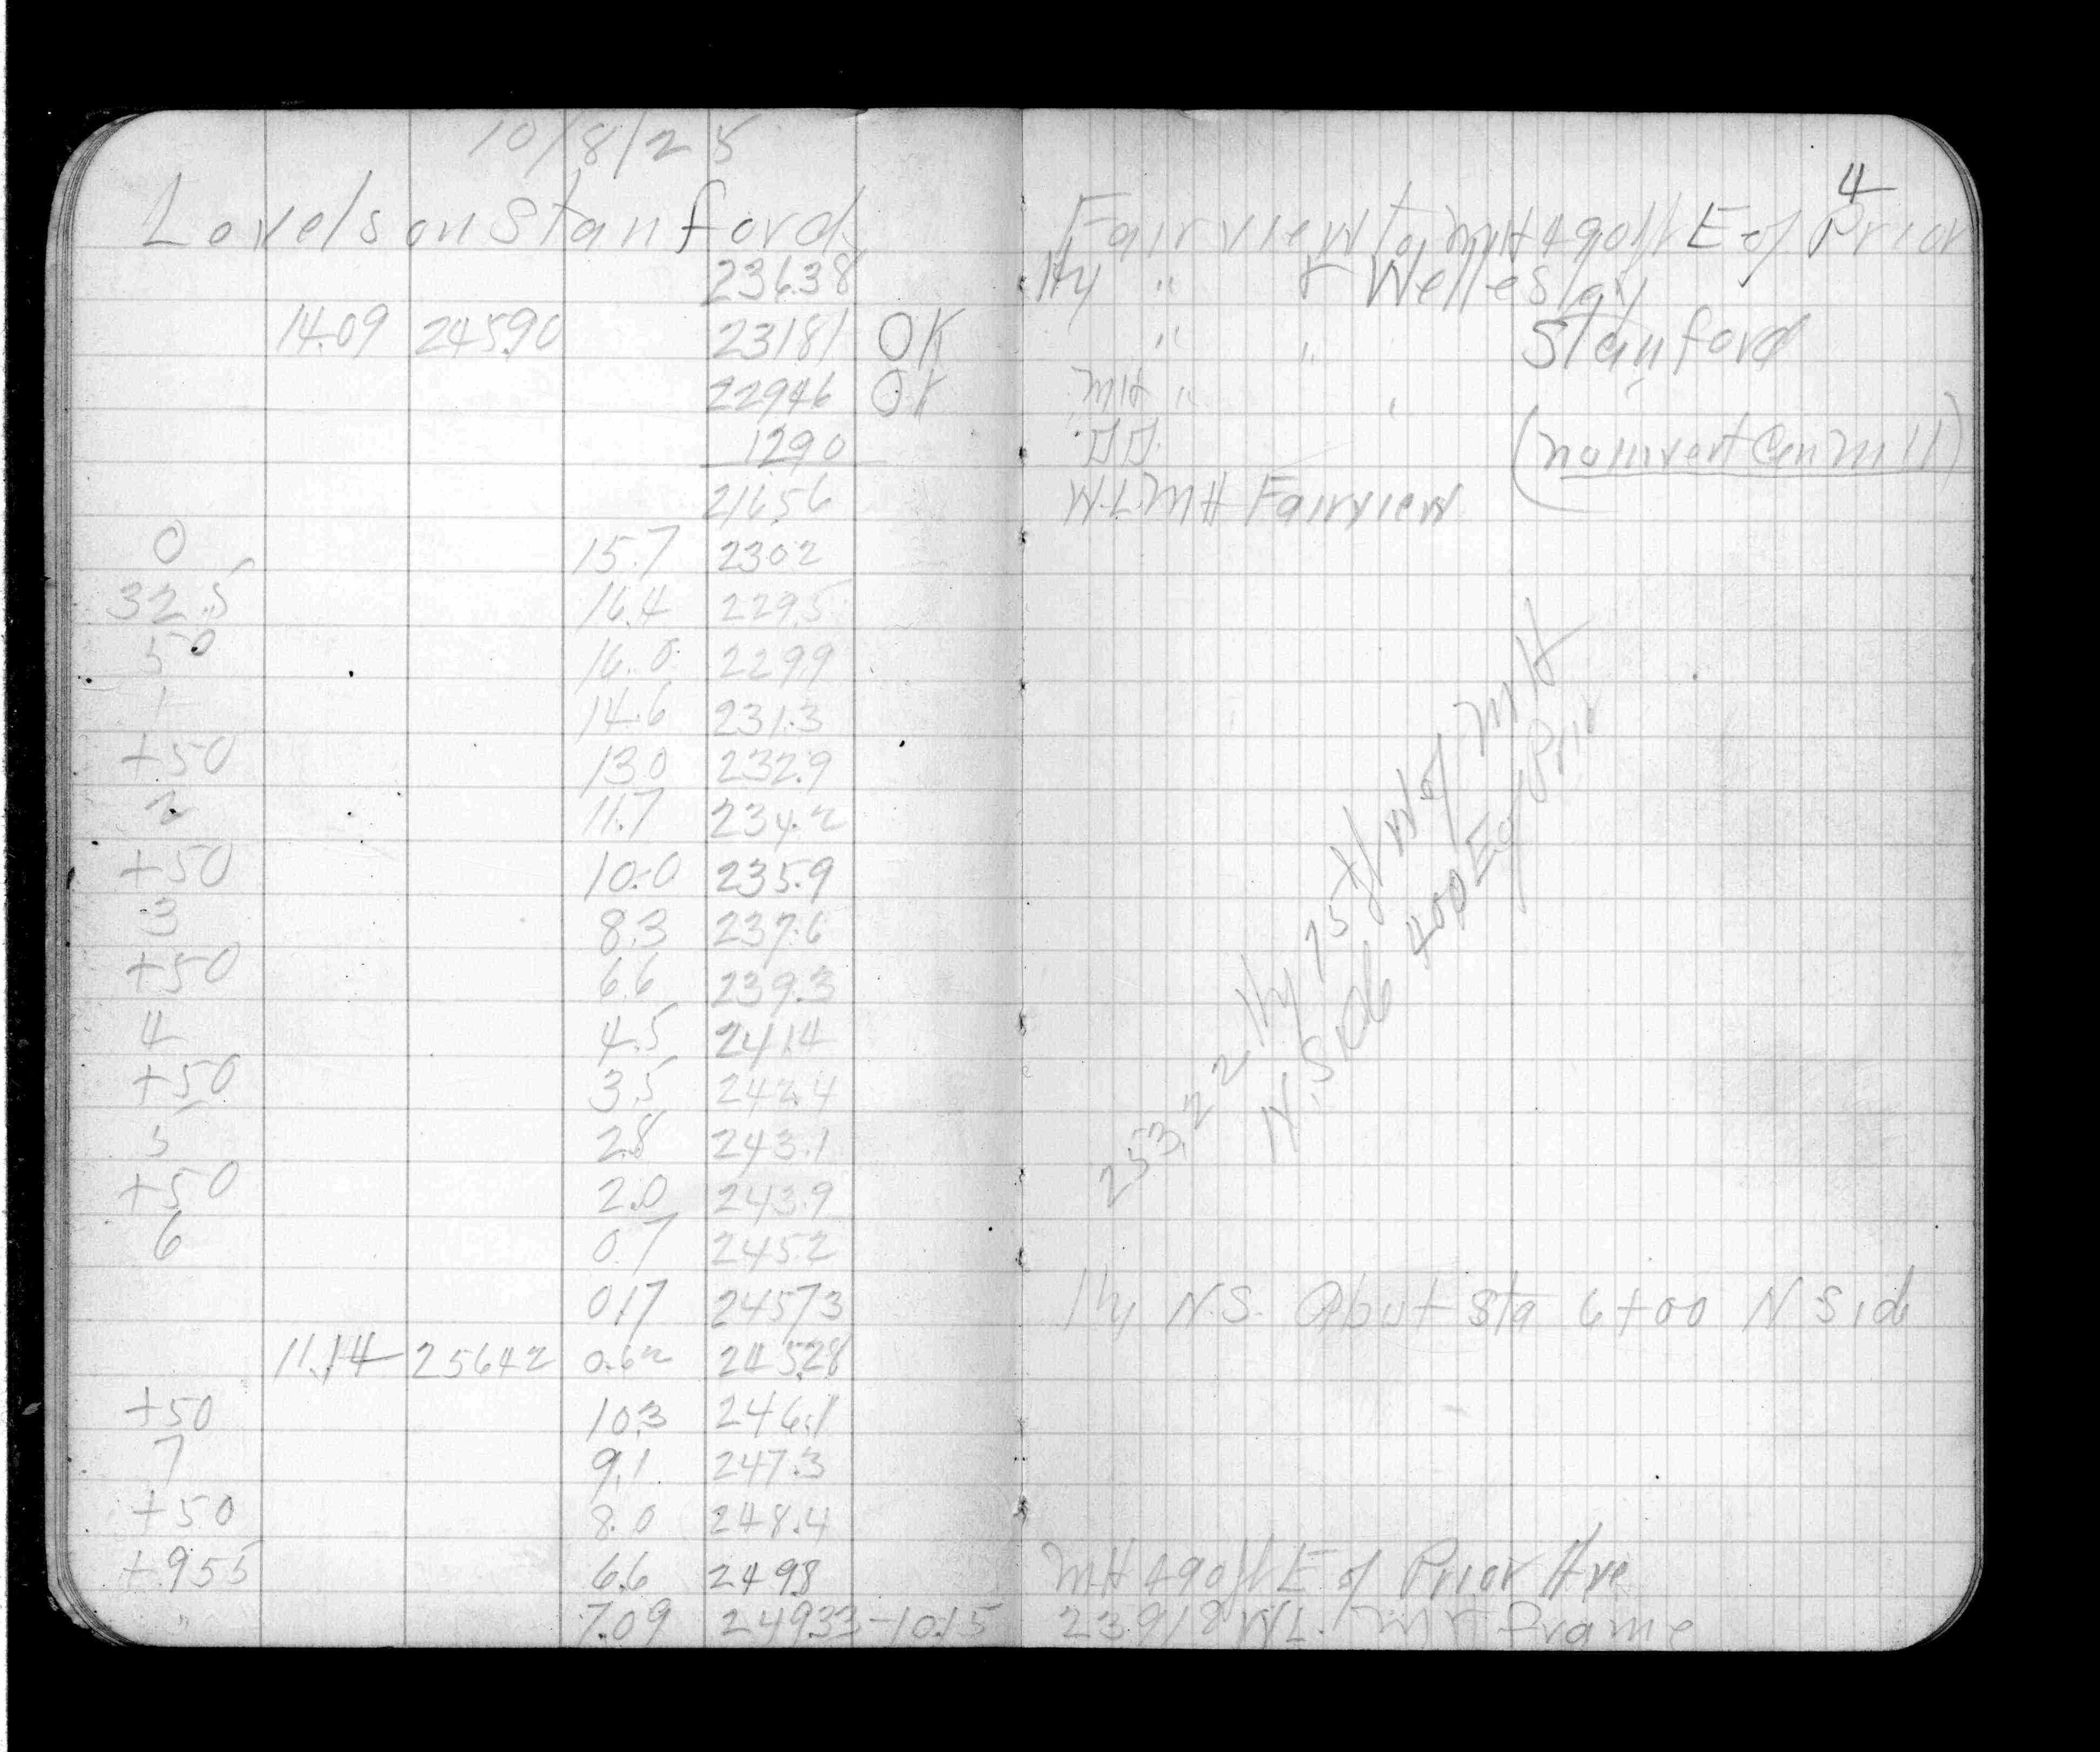 10/8/25
4
Levels on Stanford Fairview to MH 490 ft E of Prior
236.38 Hy " & Wellesley
14.09 245.90 231.81 OK " " Stanford
229.46 OK MH " " "
12.90 (no invert Cen MH)
216.56 W.L. MH Fairview
0 15.7 230.2
32.5 16.4 229.5
50 16.0 229.9
1 14.6 231.3
+50 13.0 232.9
2 11.7 234.2
+50 10.0 235.9
3 8.3 237.6
+50 6.6 239.3
4 4.5 241.4
+50 3.5 242.4
5 2.8 243.1
+50 2.0 243.9
6 0.7 245.2
0.17 245.73 Hy N.S. About Sta 6+00 N Side
11.14 256.42 0.62 245.28
+50 10.3 246.1
7 9.1 247.3
+50 8.0 248.4
+95.5 6.6 249.8 MH 490 ft E of Prior Ave
" 7.09 249.33 -10.15 239.18 W.L. MH frame
253.22 Hy 75 ft W of MH
N. Side 400 E of Prior